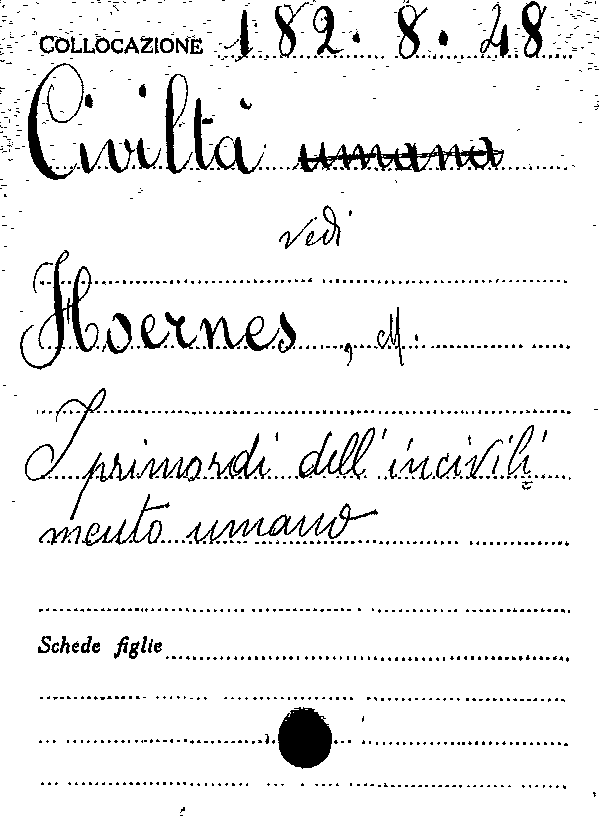 COLLOCAZIONE 182.8.48
Civiltà umana
vedi
Hoernes, M.
I primordi dell'incivili=
mento umano
Schede figlie